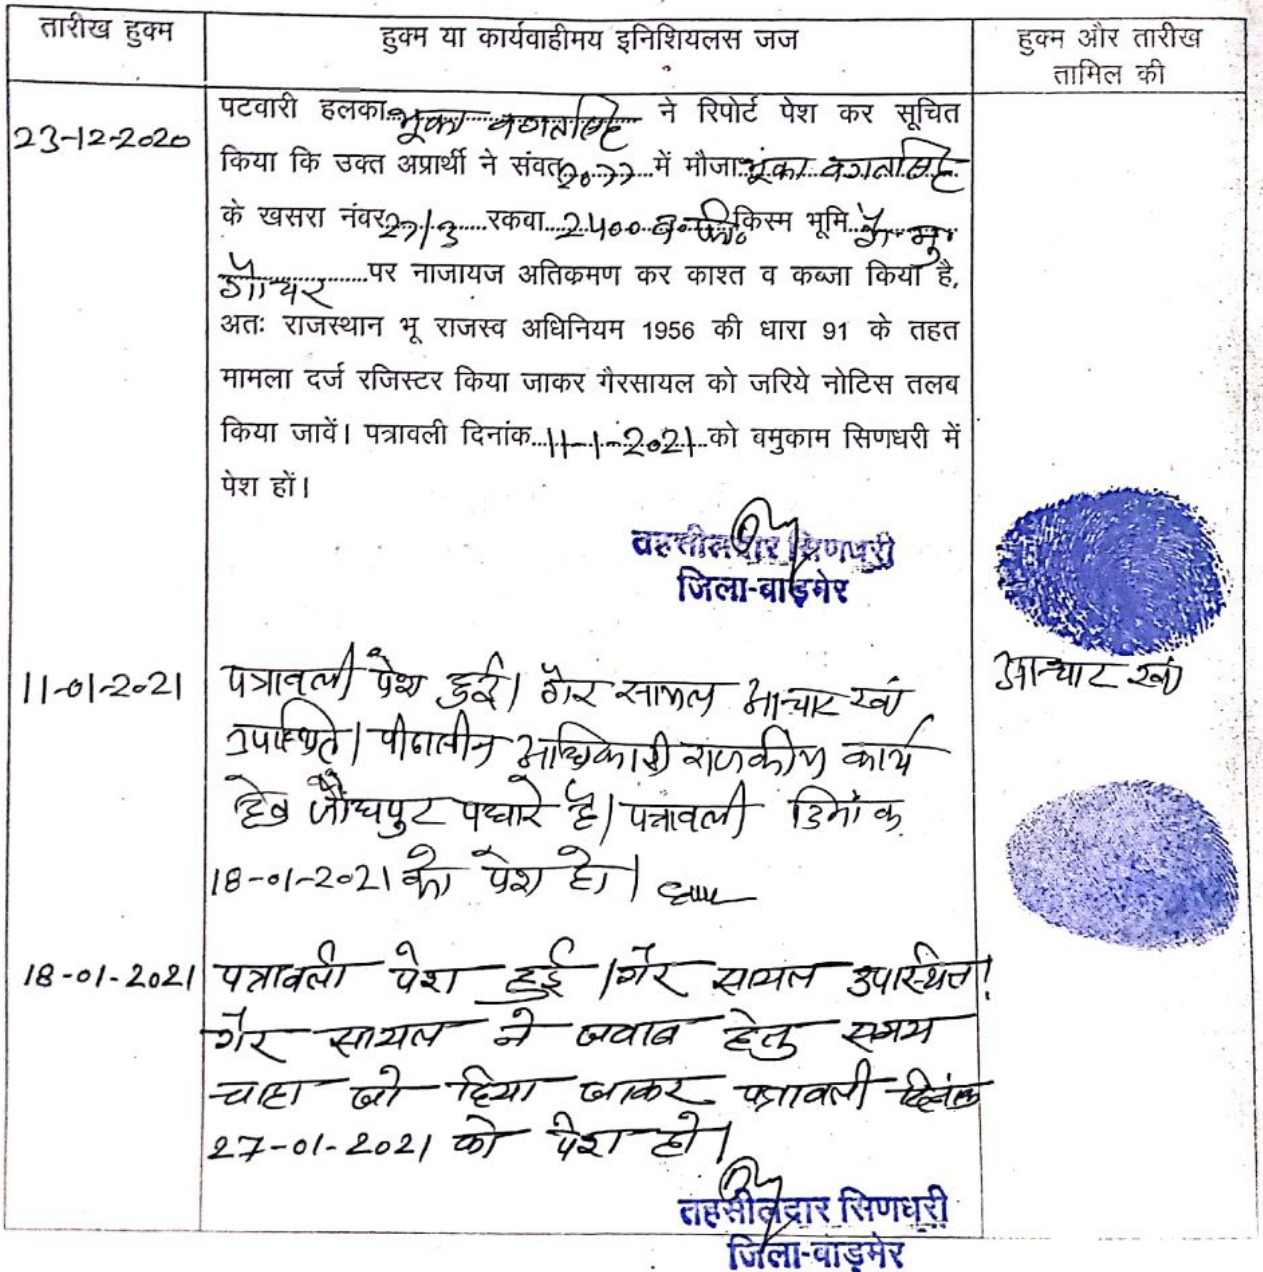 तारीख हुक्म
हुक्म या कार्यवाहीमय इनिशियलस जज
हुक्म और तारीख
तामिल की
23-12-2020
पटवारी हलका भूका भगतसिंह ने रिपोर्ट पेश कर सूचित
किया कि उक्त अप्रार्थी ने संवत 2077 में मौजा भूंका भगतसिंह
के खसरा नंबर 27/3 रकवा 2400 व.फी. किस्म भूमि गै.मु.
गोचर पर नाजायज अतिक्रमण कर काश्त व कब्जा किया है,
अतः राजस्थान भू राजस्व अधिनियम 1956 की धारा 91 के तहत
मामला दर्ज रजिस्टर किया जाकर गैरसायल को जरिये नोटिस तलब
किया जावें। पत्रावली दिनांक 11-1-2021 को वमुकाम सिणधरी में
पेश हों।
तहसीलदार सिणधरी
जिला-बाड़मेर
11-01-2021
पत्रावली पेश हुई। गैर सायल आचार खां
उपस्थित। पीठासीन अधिकारी राजकीय कार्य
हेतु जोधपुर पधारे है। पत्रावली दिनांक
18-01-2021 को पेश हो।
आचार खां
18-01-2021
पत्रावली पेश हुई। गैर सायल उपस्थित।
गैर सायल ने जवाब हेतु समय
चाहा जो दिया जाकर पत्रावली दिनांक
27-01-2021 को पेश हो।
तहसीलदार सिणधरी
जिला-बाड़मेर